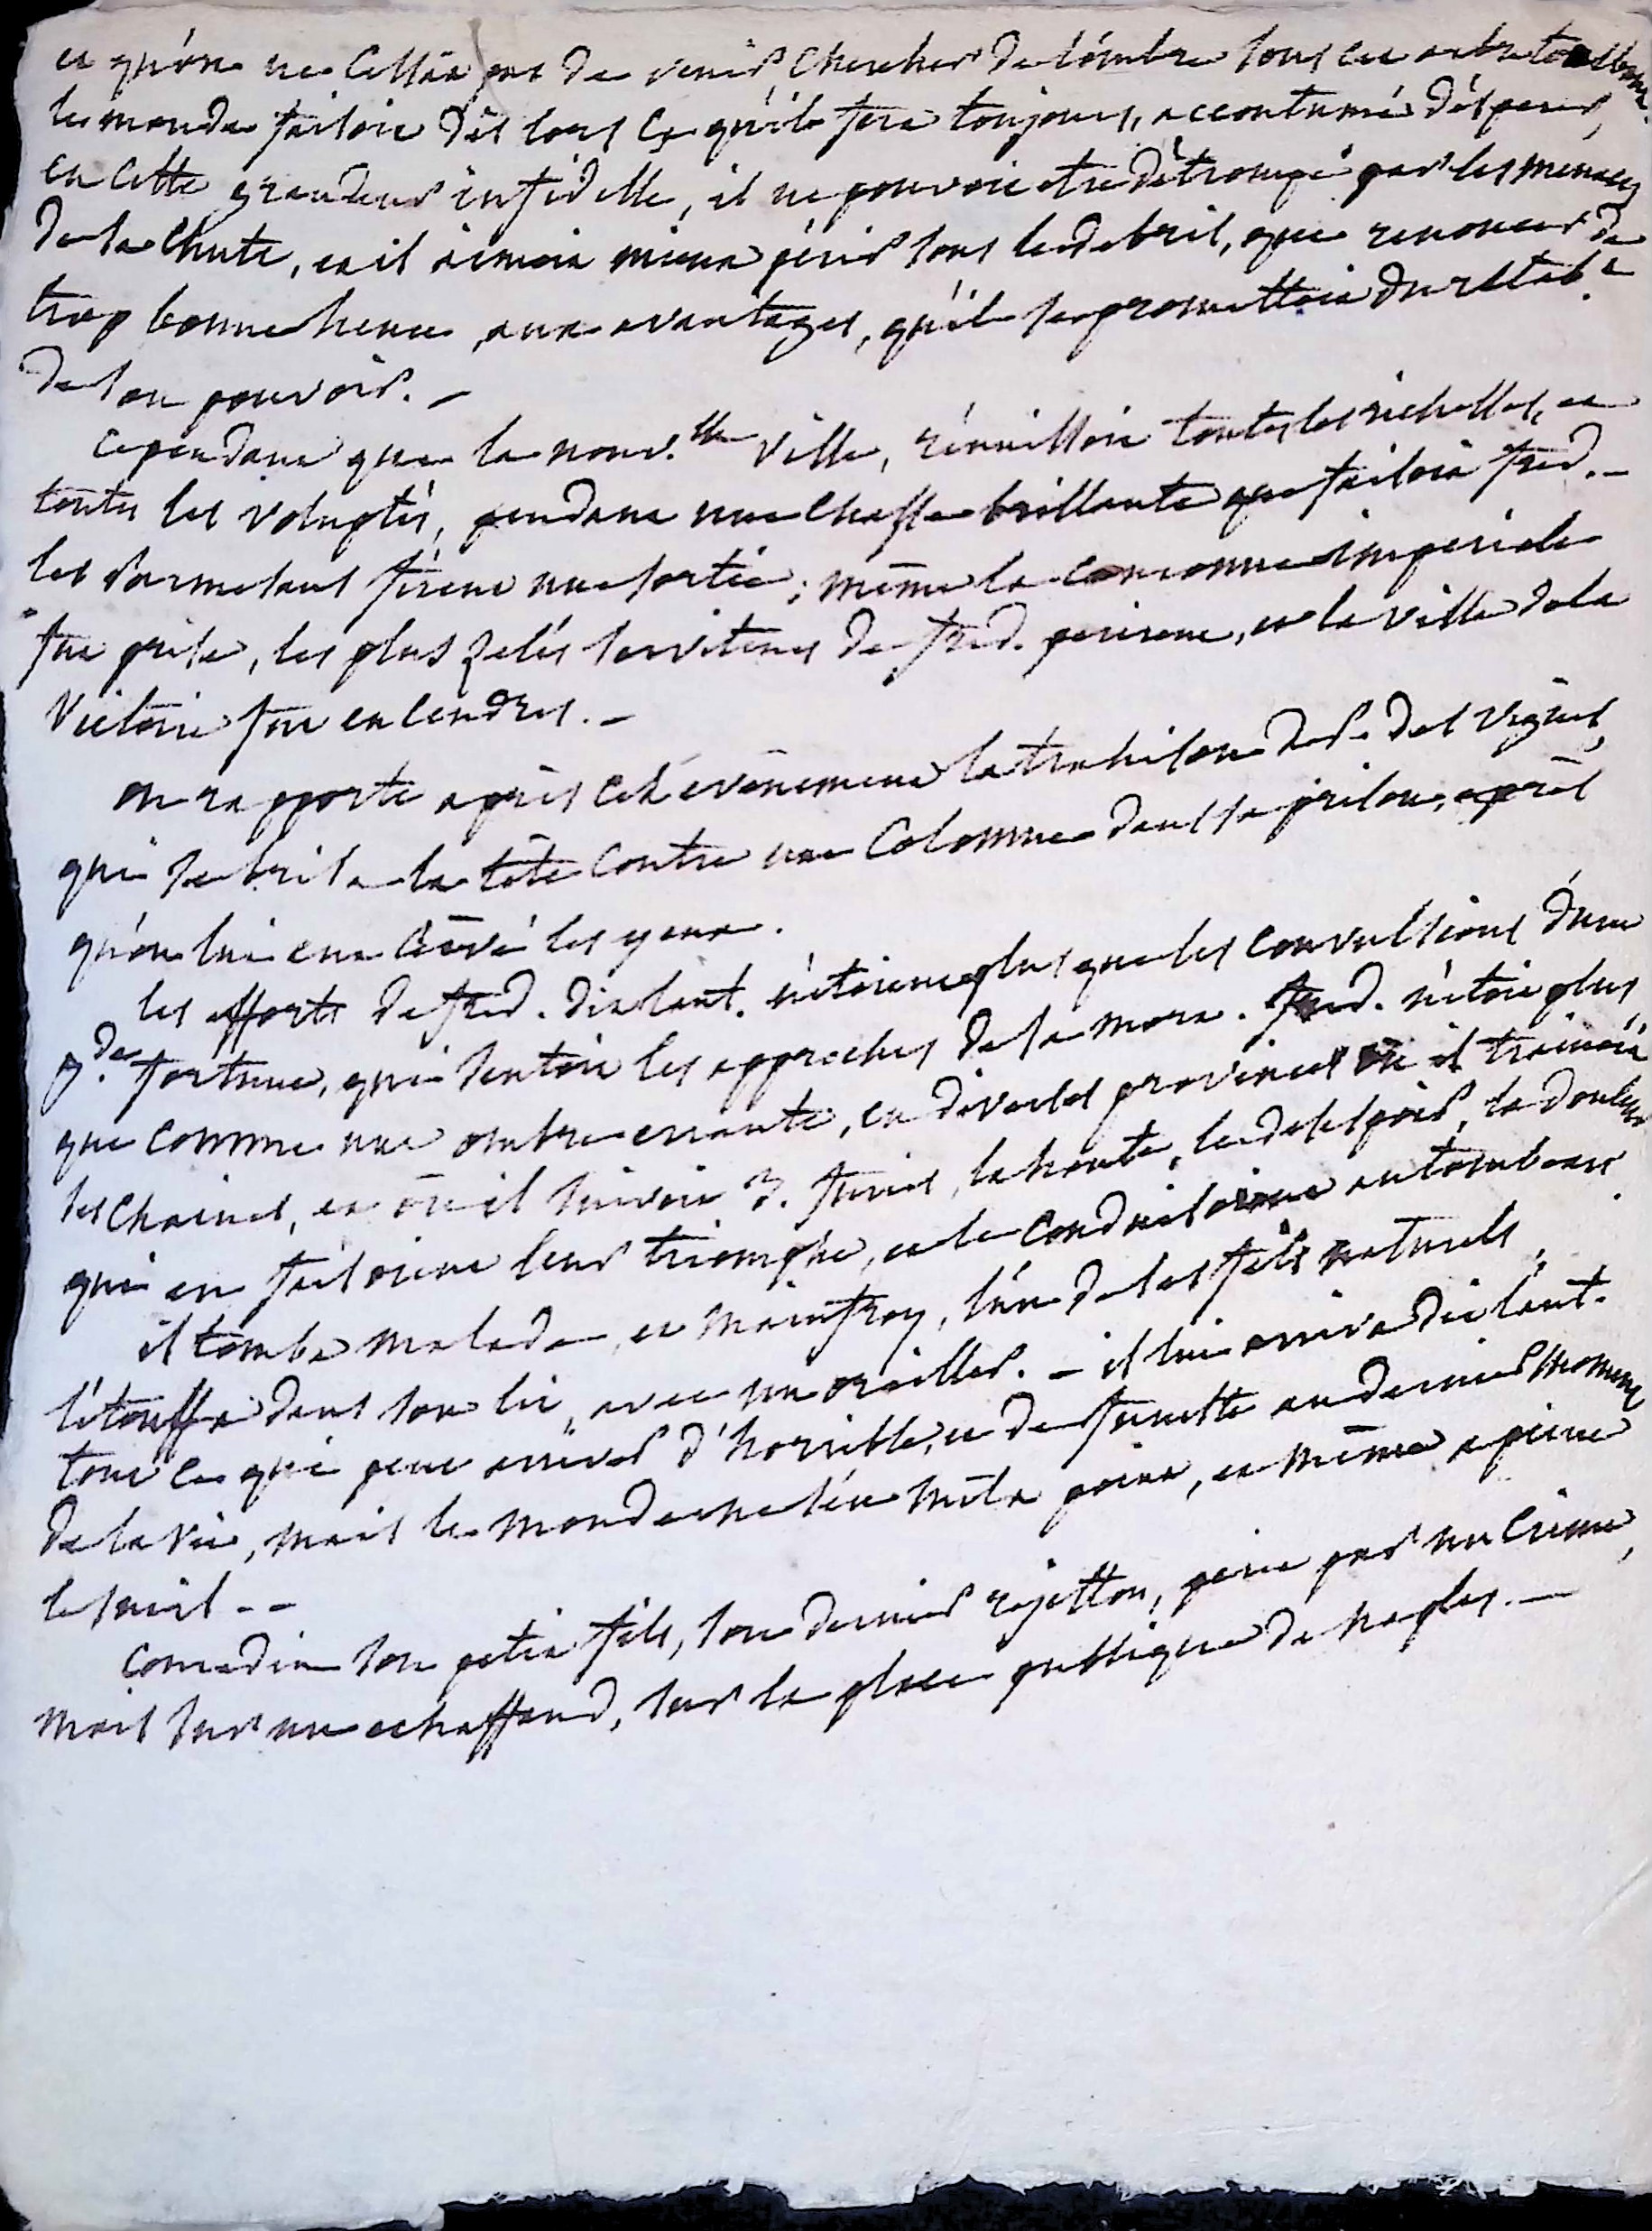 et qu'on ne cessoit pas de venir chercher de l'ombre sous cet arbre
le monde faisoit dès lors ce qu'il fera toujours, accoutumé d'espérer,
en cette grandeur infidelle, il ne pouvoit etre détrompé par les menaces
de sa chute, et il aimoit mieux périr sous le debris, que renoncer de
trop bonne heure, aux avantages, qu'il se promettoit du rétab.t
de son pouvoir. -
cependant que la nouv.lle ville, réunissoit toutes les richesses, et
toutes les voluptés, pendant une chasse brillante que faisoit fred. -
les Parmesans firent une sortie ; même la couronne imperiale
fut prise, les plus zelés serviteurs de fred. perirent, et la ville de la
Victoire fut en cendres. -
on rapporte après cet évènement la trahison de P. des vignes,
qui se brisa la tête contre une colomne dans sa prison, après
qu'on lui eut crévé les yeux.
les efforts de fred. disent. n'étoient plus que les convulsions d'une
g.de fortune, qui sentoit les approches de sa mort. fred. n'étoit plus
que comme une ombre errante, en diverses provinces où il trainoit
ses chaines, et où il suivoit 3. furies, la honte, le desespoir, la douleur
qui en faisoient leur triomphe, et le conduisoient au tombeau.
il tomba malade, et mainfroy, l'un de ses fils naturels,
l'étouffa dans son lit, avec un oreiller. - il lui arriva disent.
tout ce qui peut arriver d'horrible, et de funeste au dernier moment
de la vie, mais le monde ne s'en mit point, et même a peine
le suivit - -
Conradin son petit fils, son dernier rejetton, perit par un crime,
mais sur un echaffaud, sur la place publique de naples. -